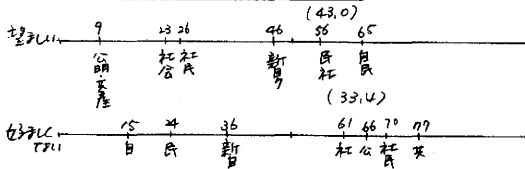 (43.0)
望ましい 9 23 26 46 56 65
公明・共産 社公 社民 新自ク 民社 自民
(33.4)
好ましくない 15 24 36 61 66 70 77
自 民 新自 社 公 社民 共